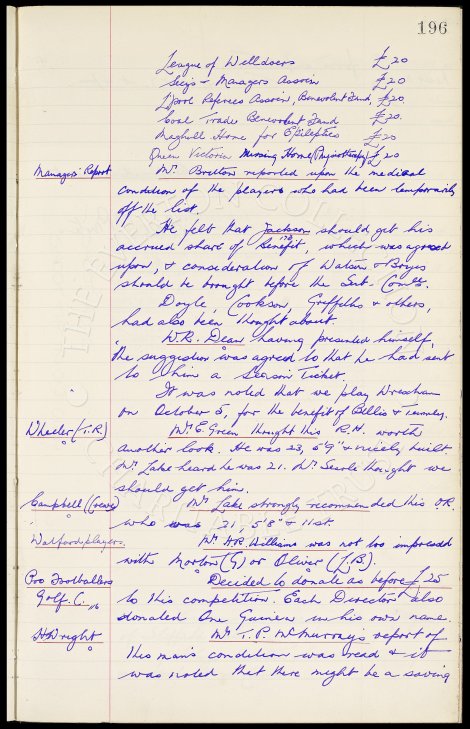 196
League of Welldoers £20
Secy's & Managers Assocn £20
L'pool Referees Assocn, Benevolent Fund, £20
Coal Trade Benevolent Fund £20.
Maghull Home for Epileptics £20
Queen Victoria Nursing Home (Physiotherapy) £20
Managers' Report Mr. Britton reported upon the medical
condition of the players who had been temporarily
off the list.
He felt that Jackson should get his
accrued share of Benefit, which was agreed
upon, & consideration of Watson & Boyes
should be brought before the Sub-Comtee.
Doyle, Cookson, Griffiths & others,
had also been thought about.
W.R. Dean having presented himself,
the suggestion was agreed to that he had sent
to him a Season Ticket.
It was noted that we play Wrexham
on October 5, for the benefit of Bellis & Tunney.
Wheeler (T.R.) Mr. E. Green thought this R.H. worth
another look. He was 23, 5'9" & nicely built.
Mr. Lake heard he was 21. Mr. Searle thought we
should get him.
Campbell (Crewe) Mr. Lake strongly recommended this OR.
who was 21, 5'8" & 11st.
Watford players. Mr. H.R. Williams was not too impressed
with Morton (G) or Oliver (L.B.)
Pro Footballers Decided to donate as before £25
Golf. C. to this competition. Each Director also
donated One Guinea in his own name.
H. Wright Mr. T. P. McMurray's report of
this man's condition was read & it
was noted that there might be a saving